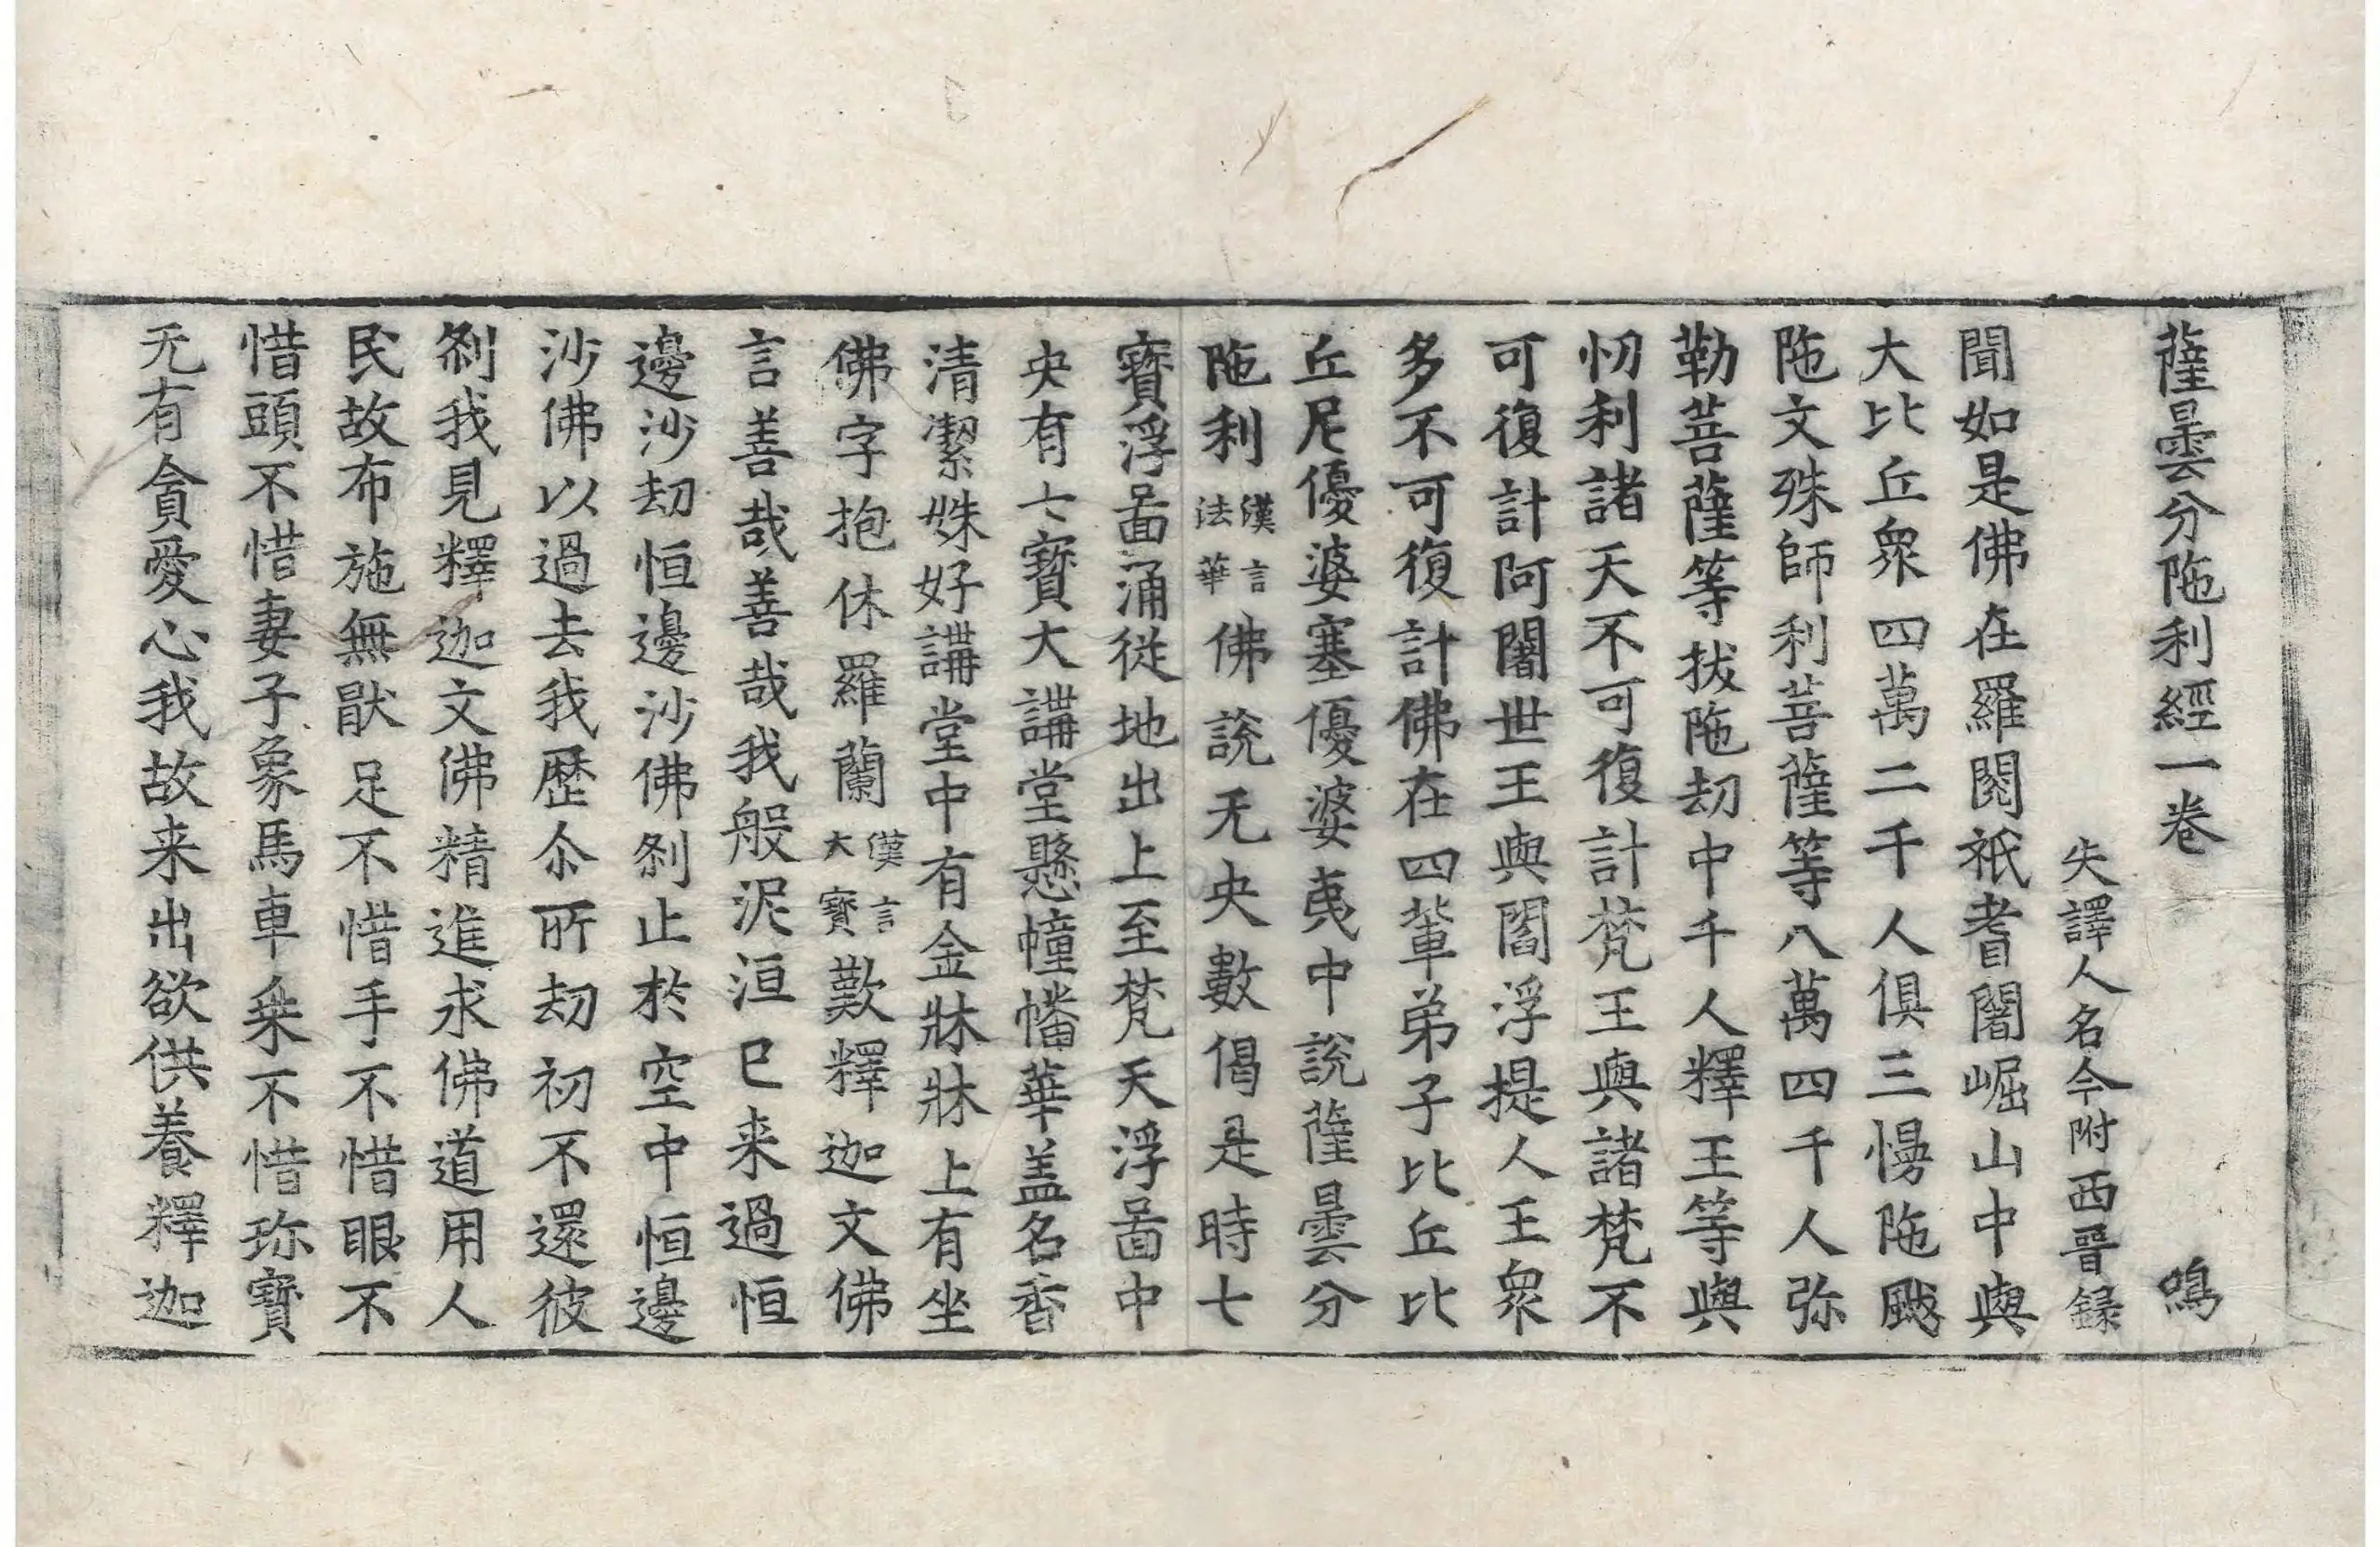 薩曇分陁利經一卷 鳴
失譯人名今附西晉録
聞如是佛在羅閱祇耆闍崛山中與
大比丘衆四萬二千人俱三慢陁颰
陁文殊師利菩薩等八萬四千人弥
勒菩薩等拔陁劫中千人釋王等與
忉利諸天不可復計梵王與諸梵不
可復計阿闍世王與閻浮提人王衆
多不可復計佛在四輩弟子比丘比
丘尼優婆塞優婆夷中說薩曇分
陁利漢言法華佛說无央數偈是時七
寶浮啚涌從地出上至梵天浮啚中
央有七寶大講堂懸幢幡華盖名香
清潔姝好講堂中有金牀牀上有坐
佛字抱休羅蘭漢言大寶歎釋迦文佛
言善哉善哉我般泥洹已来過恒
邊沙劫恒邊沙佛刹止於空中恒邊
沙佛以過去我歷尒所劫初不還彼
刹我見釋迦文佛精進求佛道用人
民故布施無猒足不惜手不惜眼不
惜頭不惜妻子象馬車乗不惜珎寶
无有貪愛心我故来出欲供養釋迦